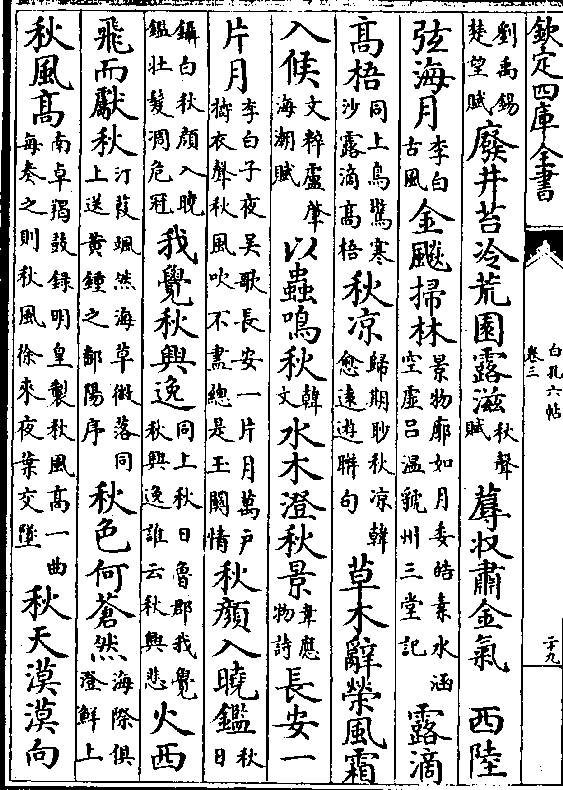 欽定四庫全書
白孔六帖
卷三
二十九
劉禹錫楚望賦廢井苔冷荒園露滋秋聲賦蓐收肅金氣 西陸
弦海月李白古風金飈掃林景物廓如月委皓素水涵空虛呂溫虢州三堂記 露滴
髙梧同上鳥驚寒沙露滴髙梧秋凉歸期眇秋凉韓愈遠遊聨句 草木辭榮風霜
入候文粹盧肇海潮賦 以蟲鳴秋韓文水木澄秋景韋應物詩長安一
片月李白子夜吴歌長安一片月萬户擣衣聲秋風吹不盡總是玉關情秋顔入曉鑑秋日
鑷白秋顔入曉鑑壯髮凋危冠我覺秋興逸同上秋日魯郡我覺秋興逸誰云秋興悲火西
飛而獻秋汀葭颯然海草微落同上送黄鍾之鄱陽序 秋色何蒼然海際俱澄鮮上
秋風髙南卓羯鼓録明皇製秋風髙一曲每奏之則秋風徐來夜葉交墜秋天漠漠向